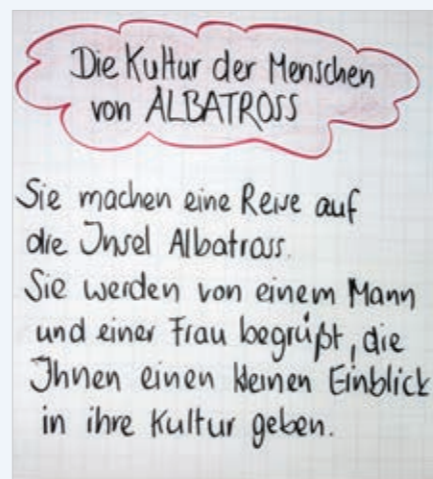 Die Kultur der Menschen
von ALBATROSS
Sie machen eine Reise auf
die Insel Albatross.
Sie werden von einem Mann
und einer Frau begrüßt, die
Ihnen einen kleinen Einblick
in ihre Kultur geben.